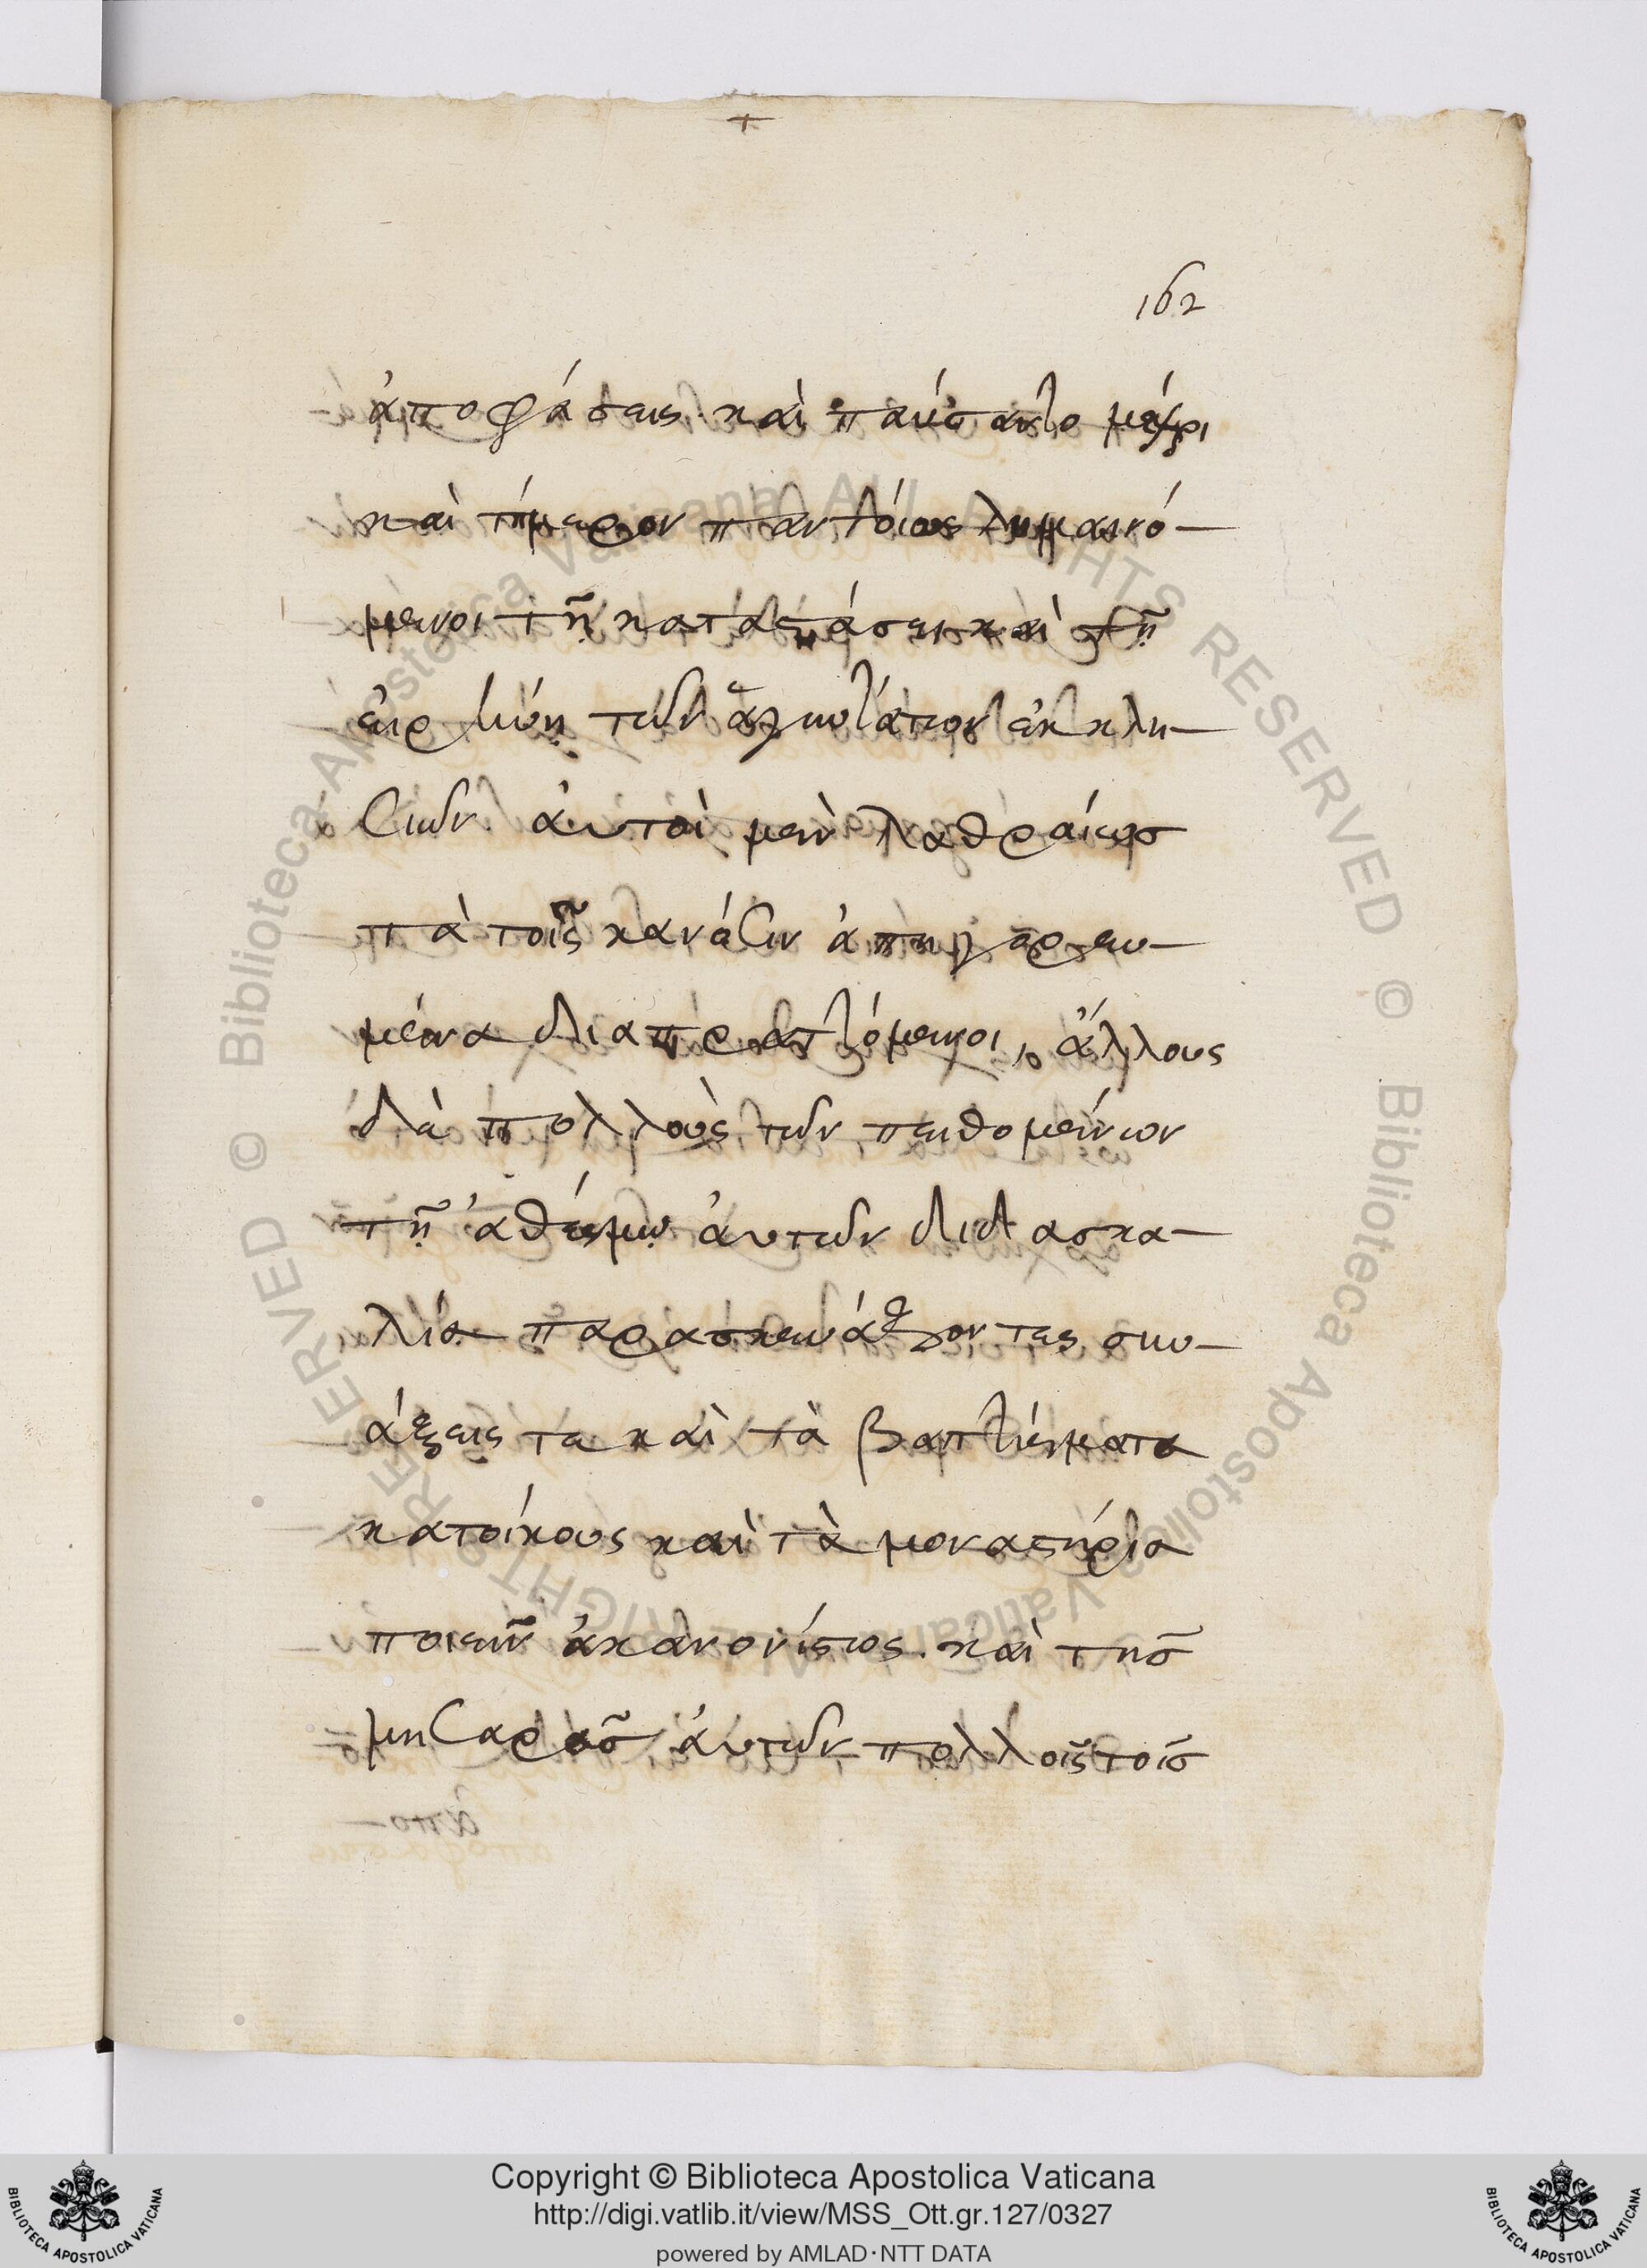 +
162
ἀποφάσεις· καὶ παύσαντο μέχρι
καὶ τήμερον παντοίως λυμαινό-
μενοι τῆ καταστάσει καὶ τῆ
εἰρήνη τῶν ἁγιωτάτων ἐκκλη-
σιῶν αὐτοὶ μὲν λαθραίως
τὰ τοῖς κανόσιν ἀπηγορευ-
μένα διαπραττόμενοι, ἄλλους
δὲ πολλοὺς τῶν πειθομένων
τῆ ἀθέσμω αὐτῶν διδασκα-
λία παρασκευάζοντες συν-
άξεις τε καὶ τὰ βαπτίσματα
κατοίκους καὶ τὰ μοναστήρια
ποιεῖν ἀκανονίστως. καὶ τῆς
μησαρᾶς αὐτῶν πολλοῖς τοῖς
Copyright © Biblioteca Apostolica Vaticana
http://digi.vatlib.it/view/MSS_Ott.gr.127/0327
powered by AMLAD·NTT DATA
BIBLIOTECA APOSTOLICA VATICANA
BIBLIOTECA APOSTOLICA VATICANA
© Biblioteca Apostolica Vaticana ALL RIGHTS RESERVED
© Biblioteca Apostolica Vaticana ALL RIGHTS RESERVED